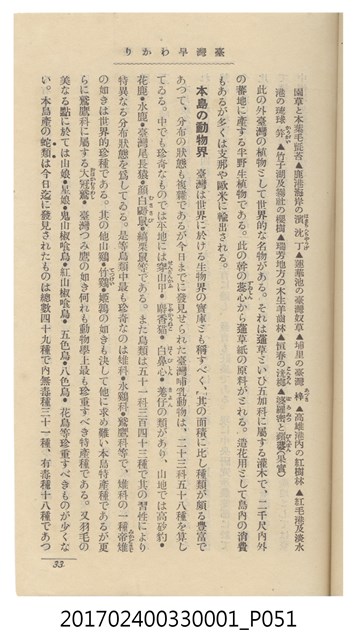 臺灣早わかり
園草と木葉毛氈苔▲鹿港海岸の濱沈丁▲蓮華池の臺灣杉草▲埔里の臺灣梓▲高雄港內の紅樹林▲紅毛港及淡水
港の瓊球弁▲竹子湖及霧社の櫻樹▲瑞芳地方の木生羊齒林▲恒春の淺樾▲菠羅蜜と蘋婆(果實)
此の外臺灣の植物として世界的な名物がある。それは蓪草といひ五加科に屬する灌木で、二千尺內外
の蕃地に產する半野生植物である。此の幹の蕊心から蓪草紙の原料がとれる。造花用として島內の消費
もあるが多くは支那や歐米に輸出される。
本島の動物界 臺灣は世界に於ける生物界の寶庫とも稱すべく、其の面積に比し種類が頗る豐富で
あつて、分布の狀態も複雜であるが今日までに發見せられた臺灣哺乳動物は、二十三科五十八種を算し
てゐる。中でも珍奇なものでは平地には穿山甲・麝香猫・白鼻心・羗仔の類があり、山地では高砂豹・
花鹿・水鹿・臺灣尾長猿・顏白鼯鼠・縞栗鼠等である。また鳥類は五十一科三百四十三種で其の習性により
特異なる分布狀態を爲してゐる。是等鳥類中最も珍奇なのは雉科・水鷄科・鷲鷹科等で、雉科の一種帝雉
の如きは世界的珍種である。其の他山鷄・竹鷄・姬鶉の如きも決して他に求め難い本島特產種であるが更
らに鷲鷹科に屬する大冠鷲・臺灣つみ鷹の如き何れも動物學上最も珍重すべき特產種である。又羽毛の
美なる點に於ては山娘・星娘・鬼山椒喰鳥・紅山椒喰鳥・五色鳥・八色鳥・花鳥等珍重すべきものが少くな
い。本島產の蛇類は今日迄に發見されたものは總數四十九種で內無毒種三十一種、有毒種十八種であつ
33
201702400330001_P051